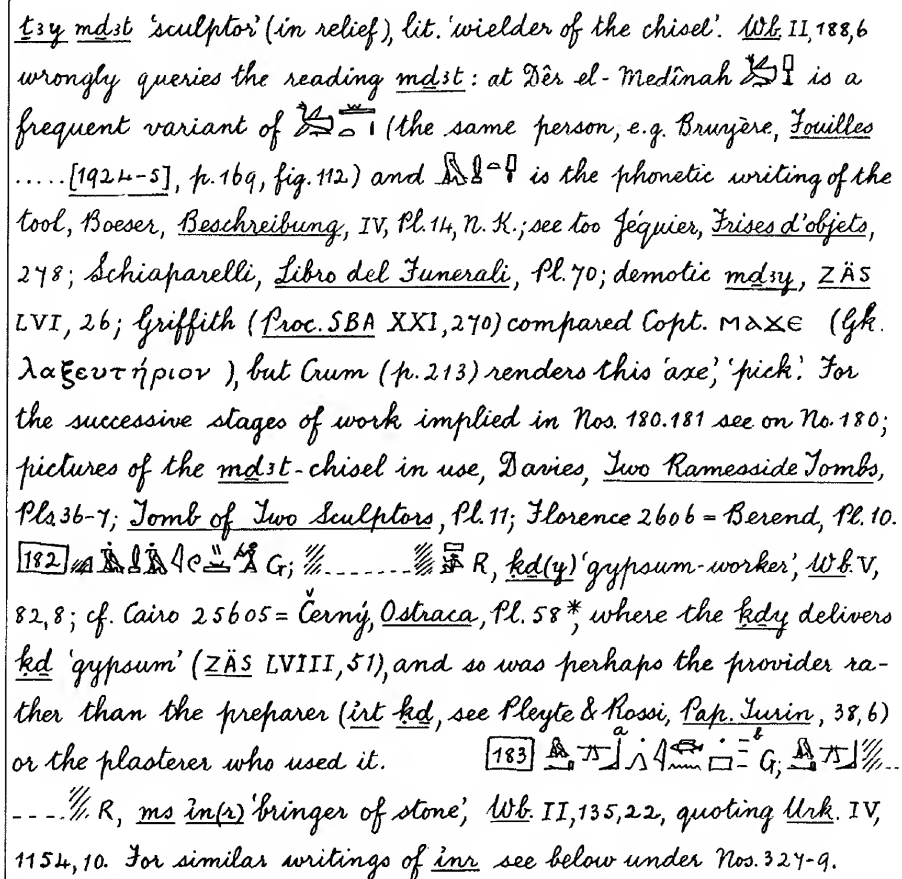 ṯꜣy mḏꜣt ‘sculptor’ (in relief), lit. ‘wielder of the chisel’. Wb. II, 188, 6
wrongly queries the reading mḏꜣt: at Dêr el-Medînah is a
frequent variant of (the same person, e.g. Bruyère, Fouilles
.....[1924-5], p. 169, fig. 112) and is the phonetic writing of the
tool, Boeser, Beschreibung, IV, Pl. 14, N. K.; see too Jéquier, Frises d'objets,
278; Schiaparelli, Libro del Funerali, Pl. 70; demotic mḏꜣy, ZÄS
LVI, 26; Griffith (Proc. SBA XXI, 270) compared Copt. ⲙⲁϫⲉ (Gk.
λαξευτήριον), but Crum (p. 213) renders this ‘axe’, ‘pick’. For
the successive stages of work implied in Nos. 180.181 see on No. 180;
pictures of the mḏꜣt-chisel in use, Davies, Two Ramesside Tombs,
Pls 36-7; Tomb of Two Sculptors, Pl. 11; Florence 2606 = Berend, Pl. 10.
182 G; ........ R, ḳd(y) ‘gypsum-worker’, Wb. V,
82, 8; cf. Cairo 25605 = Černý, Ostraca, Pl. 58*, where the ḳdy delivers
ḳd ‘gypsum’ (ZÄS LVIII, 51), and so was perhaps the provider ra-
ther than the preparer (irt ḳd, see Pleyte & Rossi, Pap. Turin, 38, 6)
or the plasterer who used it. 183 a b G; ..
---- R, ms in(r) ‘bringer of stone’, Wb. II, 135, 22, quoting Urk. IV,
1154, 10. For similar writings of inr see below under Nos. 327-9.